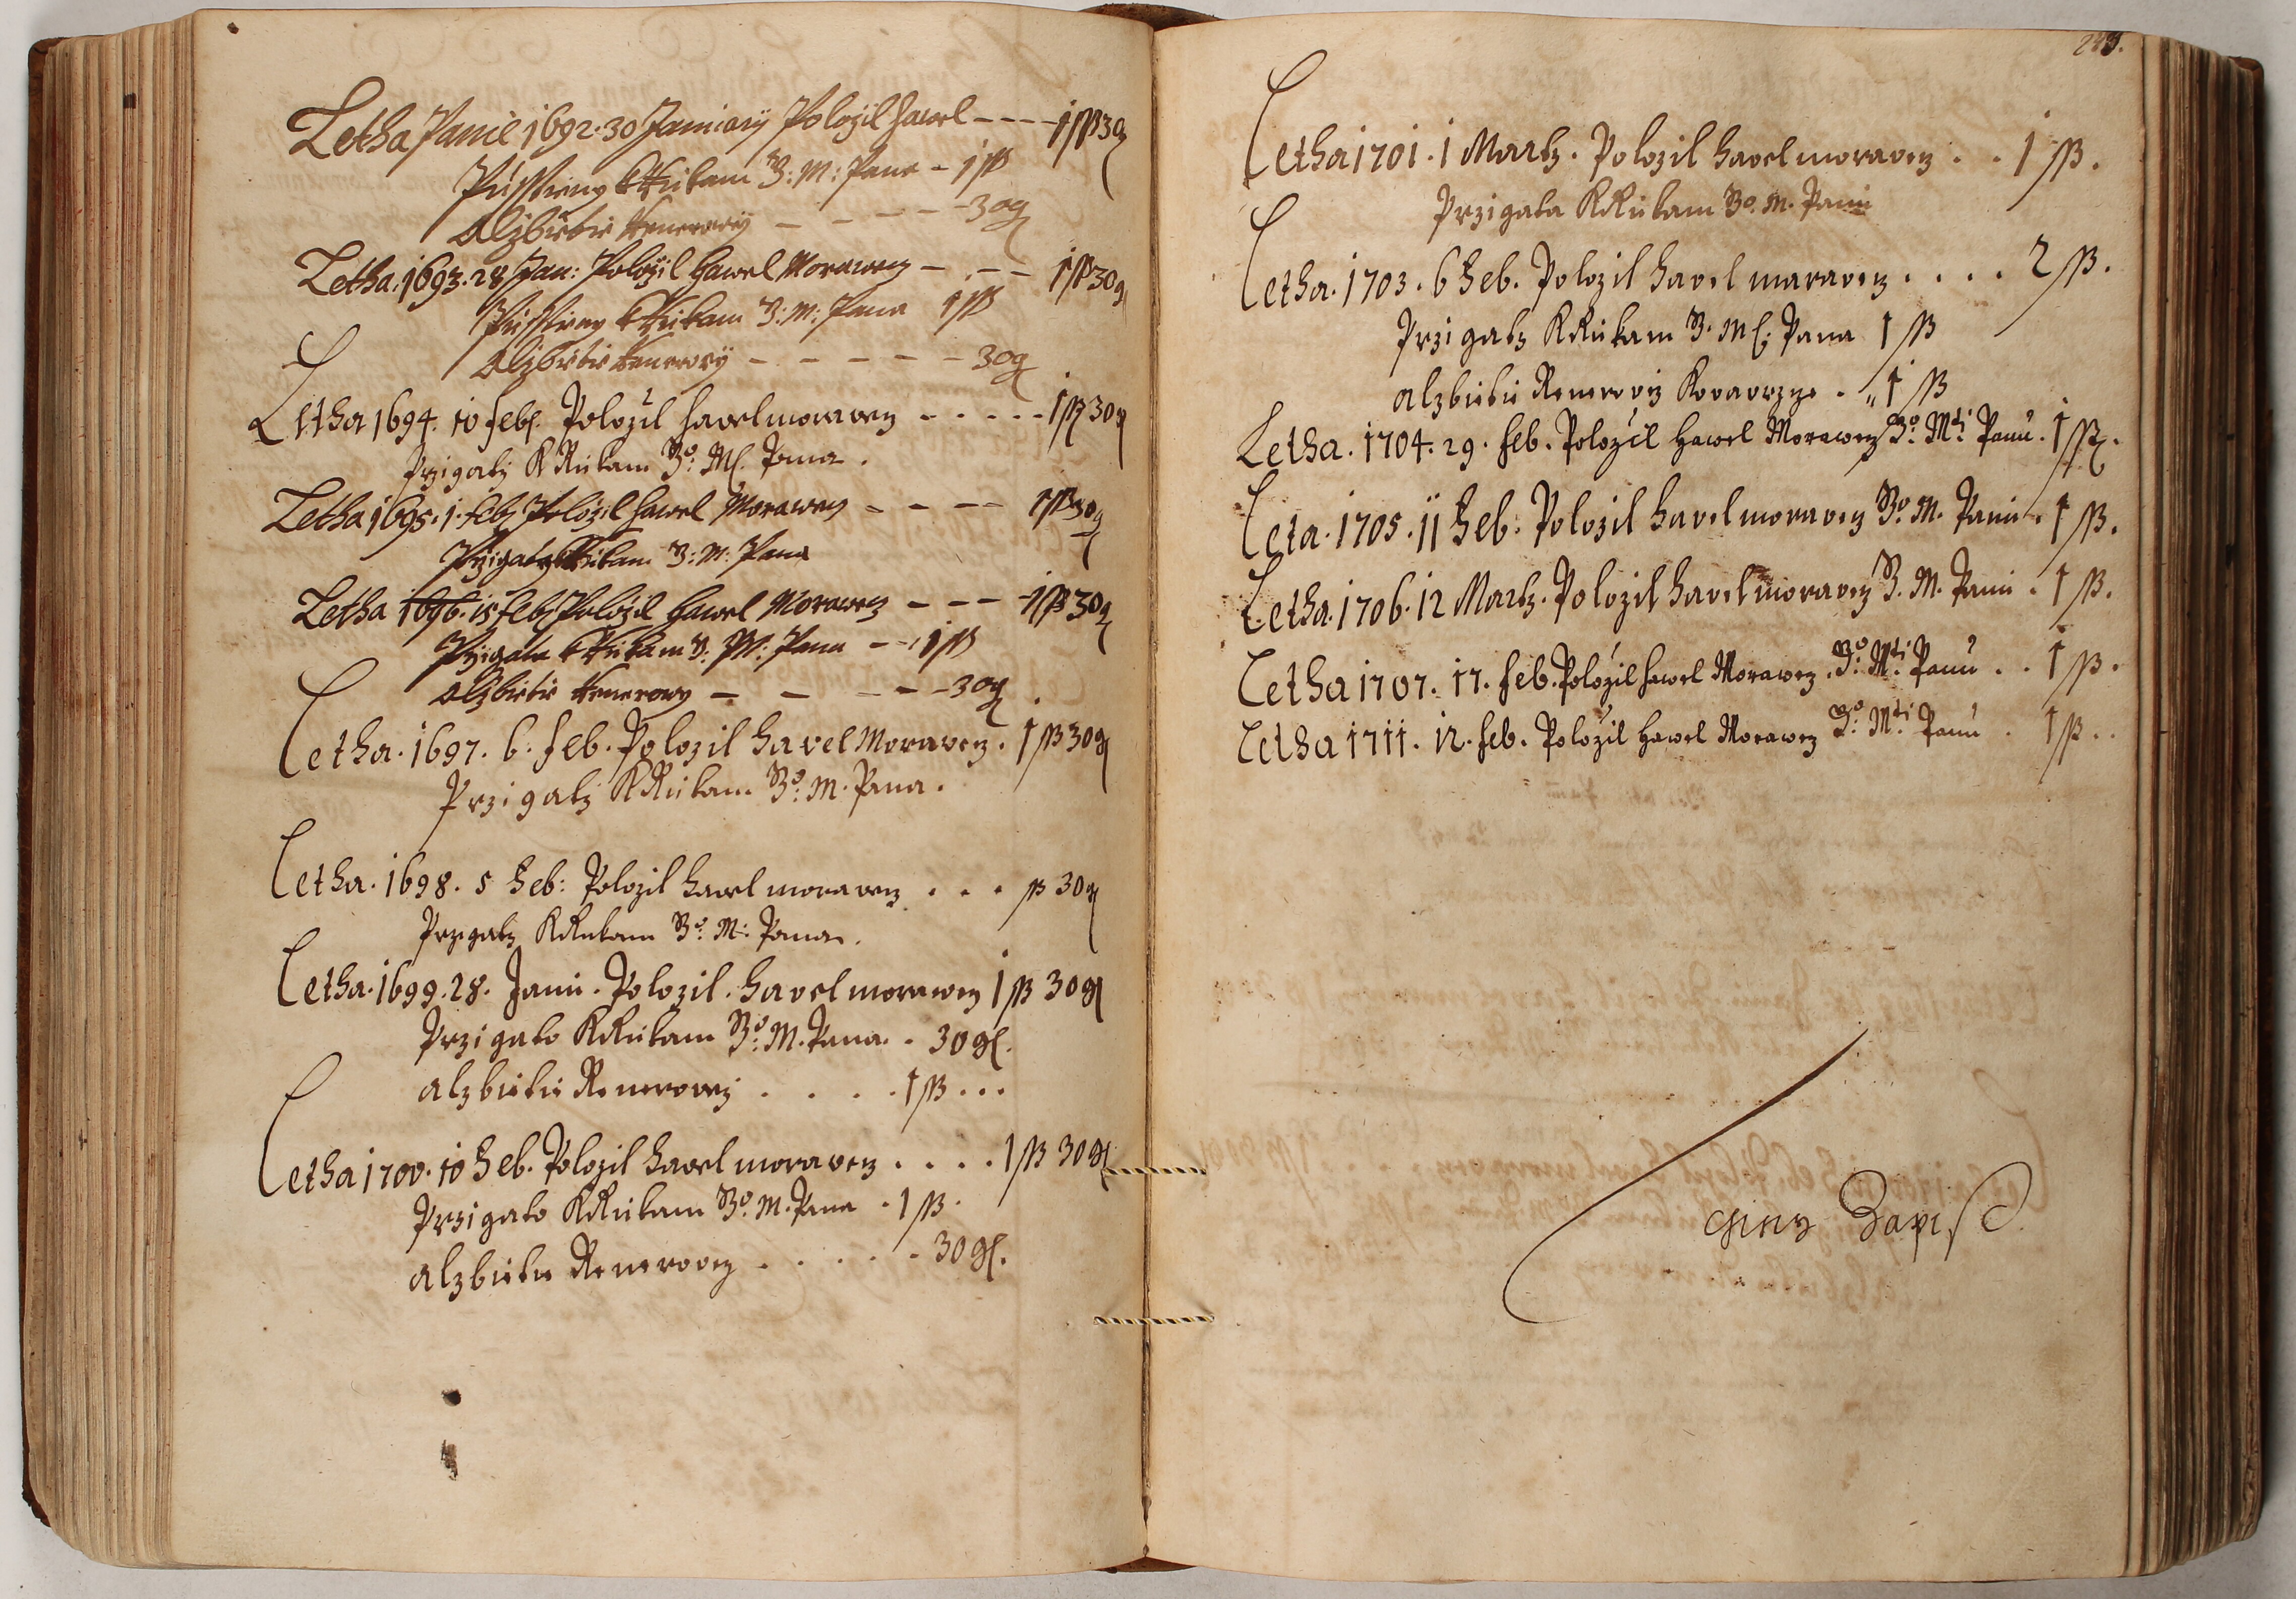 Letha Panie 1692. 30 January Polozil Hawel - - - - 1 ß 30 g
Pusstieny k Rukam J: M: Pana - 1 ß
Alzbietie Renerowÿ - - - - - 30 g
Letha. 1693. 28 Jan: Polozil Hawel Morawecz - - - 1 ß 30 g
Pusstieny k Rukam J: M: Pana 1 ß
Alzbietie Renerowÿ - - - - - 30 g
Letha 1694. 10 Feb. Polozil Hawel morawecz - - - - - 1 ß 30 g
Przigaty K Rukam Jo: M. Pana.
Letha 1695. 1. Feb. Polozil Hawel Morawecz - - - - 1 ß 30 g
Przigaty k Rukam J: M: Pana
Letha 1696. 15 Feb. Polozil Hawel Morawecz - - - 1 ß 30 g
Przigata k Rukam J: M: Pana - - 1 ß
Alzbietie Renerowy - - - - - 30 g
Letha. 1697. 6. Feb. Polozil Havel Moravecz. 1 ß 30 g
Przigaty K Rukam Jo: M. Pana.
Letha. 1698. 5 Feb: Polozil Havel moravecz . . . ß 30 g
Przigaty K Rukam Jo: M: Pana.
Letha. 1699. 28. Janu. Polozil. Havel morawecz 1 ß 30 g
Przigato K Rukam Jo: M. Pana. . 30 g.
alzbietie Renerowy . . . . 1 ß . . .
Letha 1700. 10 Feb. Polozil Havel moravecz . . . . 1 ß 30 g
Przigato K Rukam Jo. M. Pana . 1 ß.
alzbietie Renerovy . . . . . 30 g.
Letha 1701. 1 Martz. Polozil Havel moravecz . . 1 ß.
Przigata K Rukam Jo. M. Panu
Letha. 1703. 6 Feb. Polozil Havel maravecz . . . . 2 ß.
Przigaty K Rukam J. M. Pana 1 ß
alzbietie Renerovy Kovarzyze . „ 1 ß
Letha. 1704. 29. Feb. Polozil Hawel Morawecz Jo: Mti Panu. 1 ß.
Leta. 1705. 11 Feb: Polozil Havel moravecz Jo. M. Panu . 1 ß.
Letha. 1706. 12 Martz. Polozil Havel moravecz J. M. Panu . 1 ß.
Letha 1707. 17. Feb. Polozil Hawel Morawecz. Jo: Mti: Panu . . 1 ß.
Letha 1711. 12. Feb. Polozil Hawel Morawecz Jo: Mti: Panu . 1 ß . .
Giny Zapis